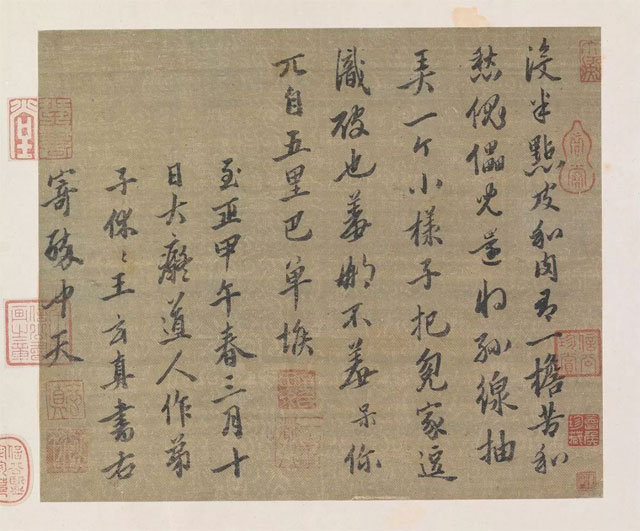 沒半點皮和肉有一擔苦和
愁傀儡兒還將絲線抽
弄一个小樣子把冤家逗
識破也羞那不羞呆你
兀自五里巴單堠
至正甲午春三月十
日大癡道人作弟
子休〻王玄真書右
寄醉中天